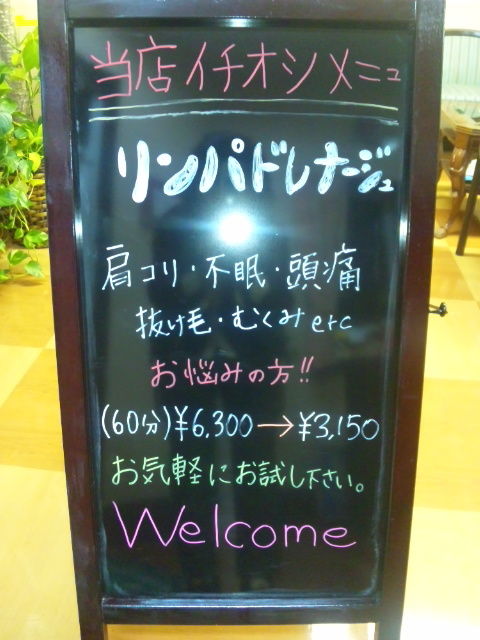 当店イチオシメニュ
リンパドレナージュ
肩コリ・不眠・頭痛
抜け毛・むくみ etc
お悩みの方!!
(60分)¥6,300→¥3,150
お気軽にお試し下さい。
Welcome